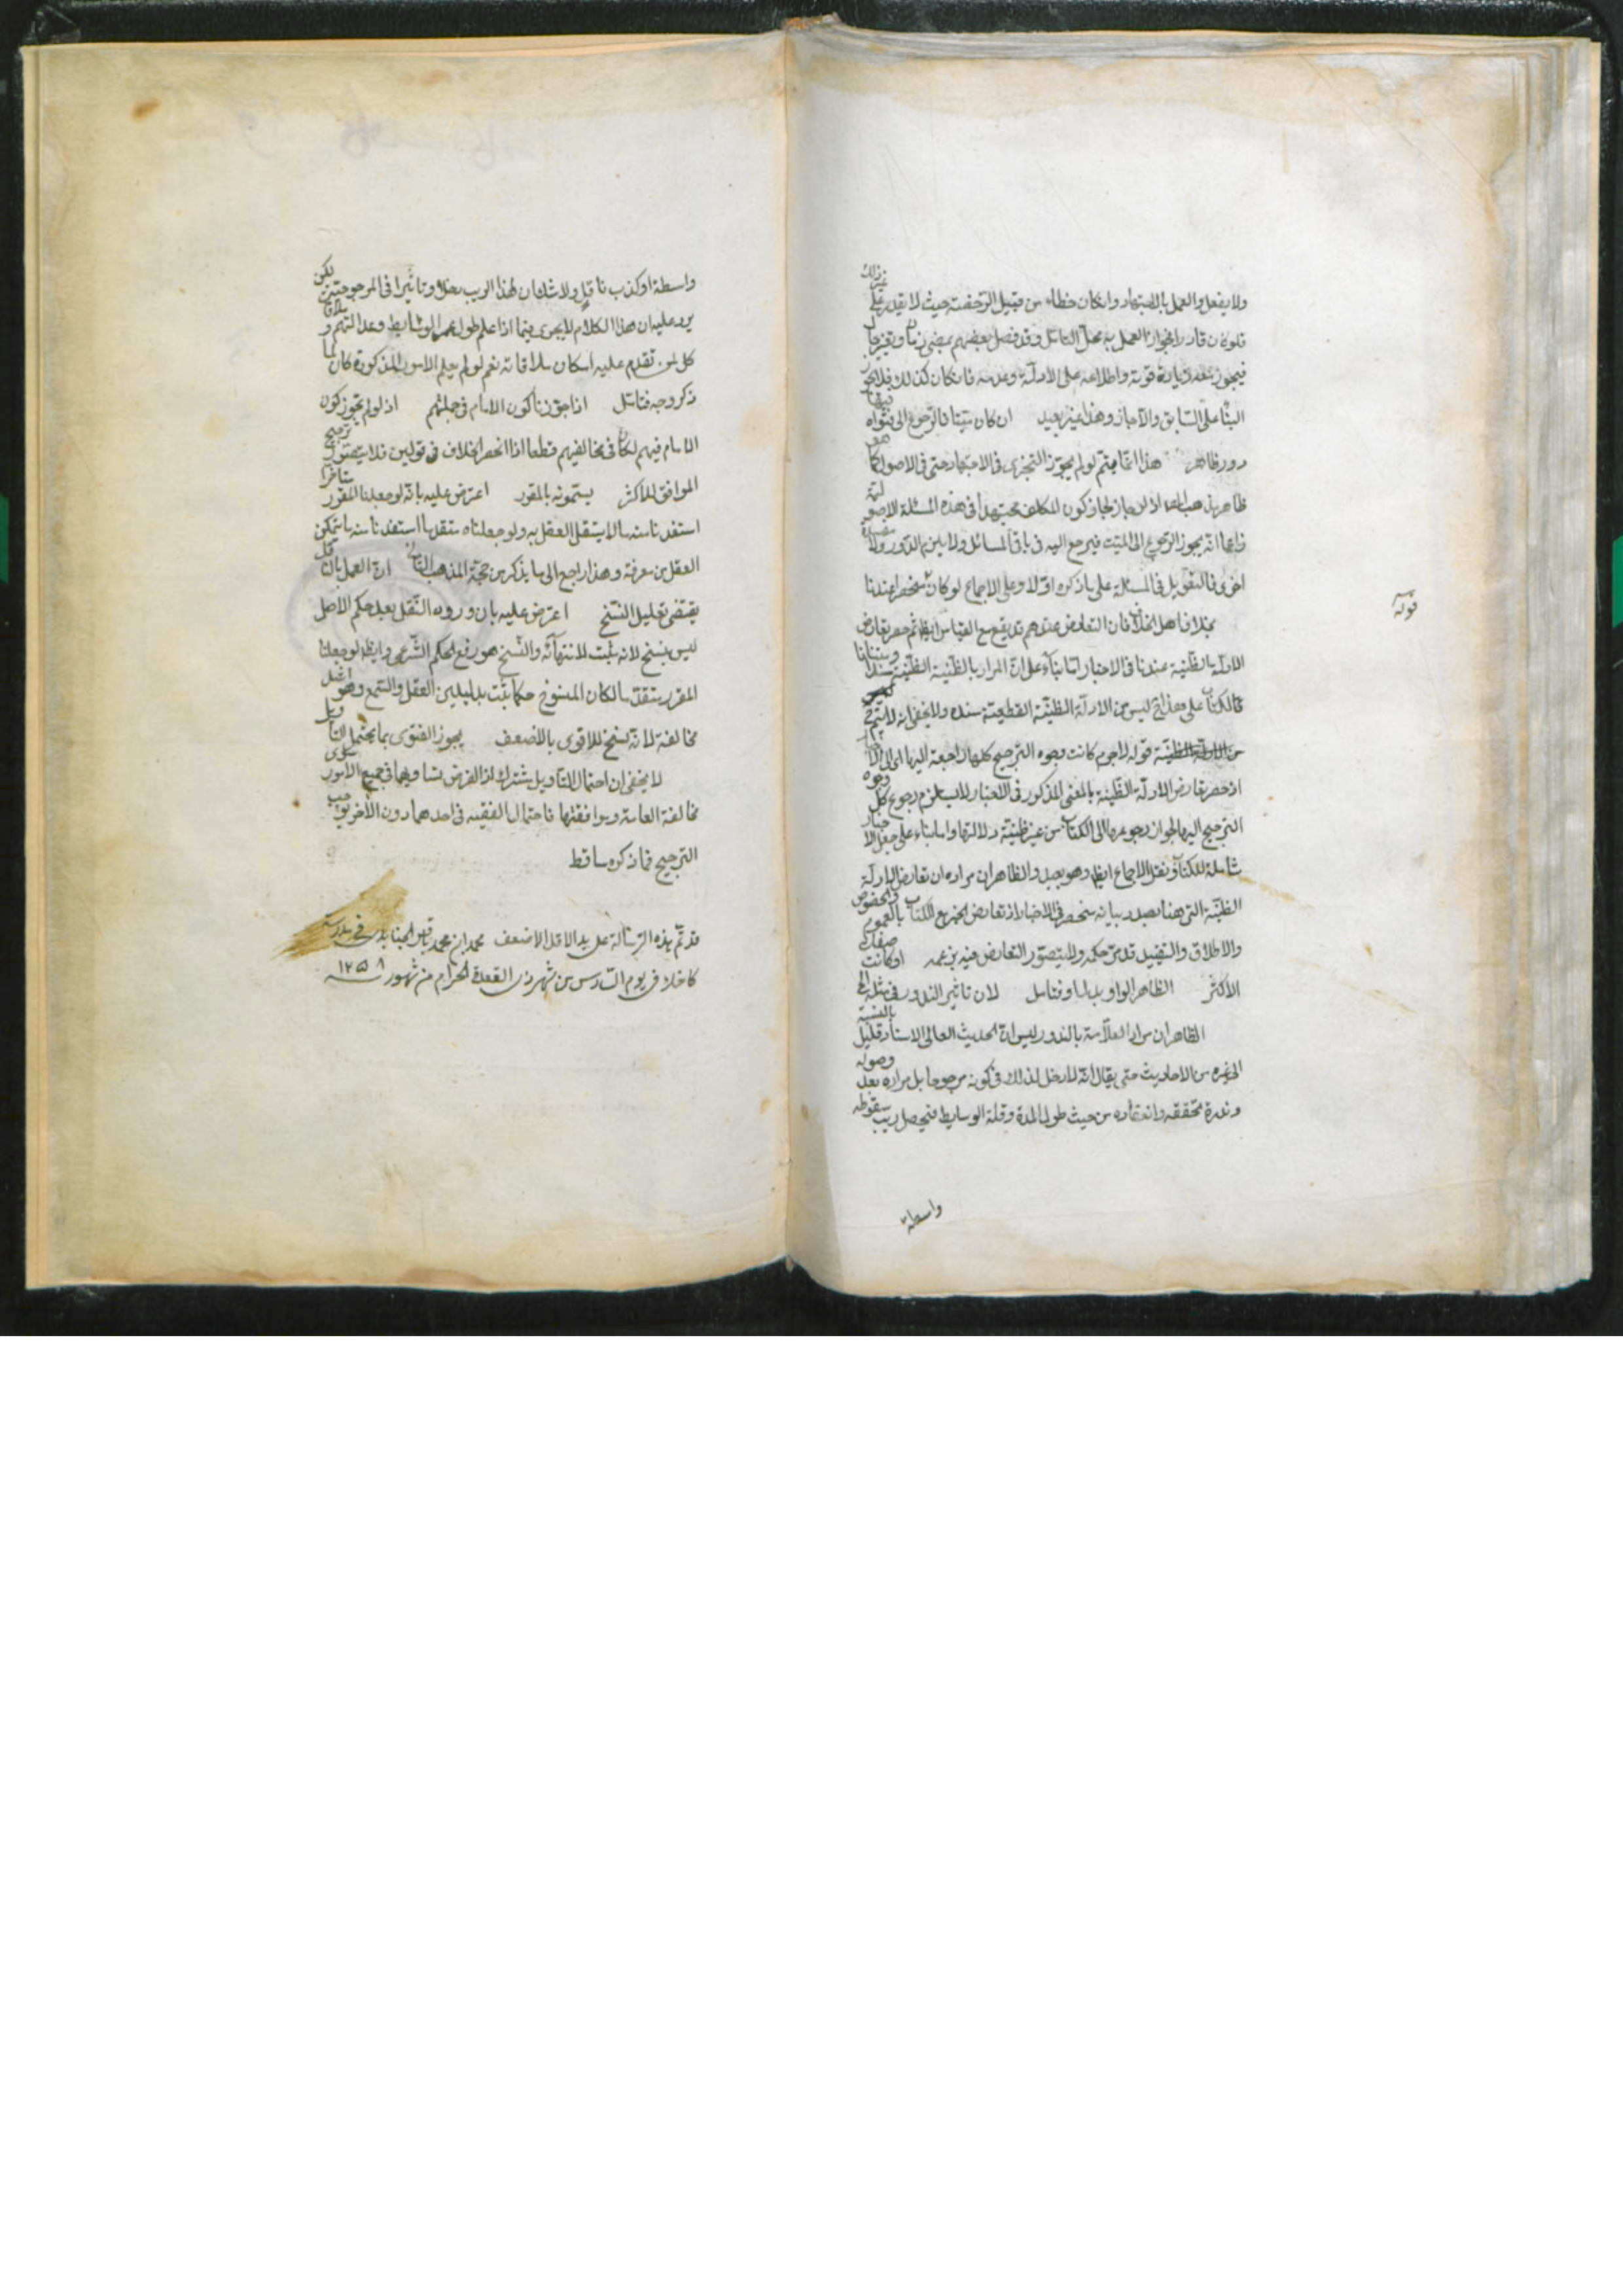 ولا يفعل والعمل بالاجتهاد وان كان خطاء من قبيل الرخصة حيث لا يقدر على غير ذلك
فلو كان قادرا فجواز العمل به محل التامل وقد فصل بعضهم بمضى زمان وتغير حال
فيجوز بتعدد زيادة قوته واطلاعه على الادلة وعدمه فان كان كذلك فلا يجوز
البناء على السابق والا جاز وهذا غير بعيد ان كان ميتا فالرجوع الى فتواه فيها
دور ظاهر هذا انما يتم لو لم يجوز التجزى فى الاجتهاد حتى فى الاصول كما هو
ظاهر مذهب اذ لو جاز لجاز كون المكلف مجتهدا فى هذه المسئلة الاصولية
زاعما انه يجوز الرجوع الى الميت فيرجع اليه فى باقى المسائل ولا يلزم الدور ولا مفسدة
اخرى فالتعويل فى المسئلة على ما ذكره اولا وعلى الاجماع لو كان منحصر عندنا
بخلاف اهل الخلاف فان التعارض عندهم قد يقع مع القياس ايضا ثم حصر تعارض
الادلة الظنية عندنا فى الاخبار اما بناء على ان المراد بالظنية الظنية سندا
فالكتاب على هذا ليس من الادلة الظنية القطعية سنده ولا يخفى انه لا يتم
من الادلة الظنية قوله لا جرم كانت وجوه الترجيح كلها راجعة اليها اى الى الاخبار
اذ حصر تعارض الادلة الظنية بالمعنى المذكور فى الاخبار لا يستلزم رجوع كل وجوه
الترجيح اليها لجواز رجوعها الى الكتاب من غير ظنية دلالتها واما بناء على جعل الاخبار
شاملة للكتاب ونقل الاجماع ايضا وهو بعيد والظاهر ان مراده ان تعارض الادلة
الظنية التى هنا بصدد بيانه منحصر فى الاخبار اذ تعارض الخبر مع الكتاب بالعموم والخصوص
والاطلاق والتقييد قد مر حكمه ولا يتصور التعارض فيه بغيره او كانت صفات
الاكثر الظاهر الواو بدل او فتامل لان تاثير الندور فى مثله الخ
الظاهر ان مراد العلامة بالندور ليس ان الحديث العالى الاسناد قليل بالنسبة
الى غيره من الاحاديث حتى يقال انه لا دخل لذلك فى كونه مرجوحا بل مراده بعد وصوله
وندرة تحققه وانعقاده من حيث طول المدة وقلة الوسايط فيحصل ريب سقوطه
واسطة
قوله
واسطة او كذب ناقل ولا شك ان لهذا الريب دخلا وتاثيرا فى المرجوحية لكن
يرد عليه ان هذا الكلام لا يجرى فيما اذا علم طول عمر الوسايط وعدالتهم وملاقاة
كل لمن تقدم عليه امكان ملاقاته نعم لو لم يعلم الامور المذكورة كان لما
ذكر وجه فتامل اذا جوزنا كون الامام فى جملتهم اذ لو لم يجوز كون
الامام فيهم لكان فى مخالفيهم قطعا اذا انحصر الخلاف فى قولين فلا يتصور ترجيح
الموافق للاكثر يسمونه بالمقرر اعترض عليه بانه لو جعلنا المقرر متاخرا
استفدنا منه ما لا يستقل العقل به ولو جعلناه متقدما استفدنا منه ما يتمكن
العقل من معرفته وهذا راجع الى ما يذكر من حجة المذهب الثانى ان العمل بالناقل
يقتضى تقليل النسخ اعترض عليه بان ورود النقل بعد حكم الاصل
ليس بنسخ لانه يثبت لانتهائه والنسخ هو رفع الحكم الشرعى وايضا لو جعلنا
المقرر متقدما لكان المنسوخ حكما ثبت بدليلين العقل والسمع وهو اشد
مخالفة لانه نسخ للاقوى بالاضعف يجوز الفتوى بما يحتمل التاويل
لا يخفى ان احتمال التاويل مشترك اذ الفرض تساويهما فى جميع الامور سوى
مخالفة العامة وموافقتها فاحتمال التقيه فى احدهما دون الاخر يوجب
الترجيح فما ذكره ساقط
قد تم هذه الرسالة على يد الاقل الاضعف محمد ابن محمد باقر الجنابدى فى مدرسه
كاخك فى يوم السادس من شهر ذى القعدة الحرام من شهور سنه ١٢٥٨